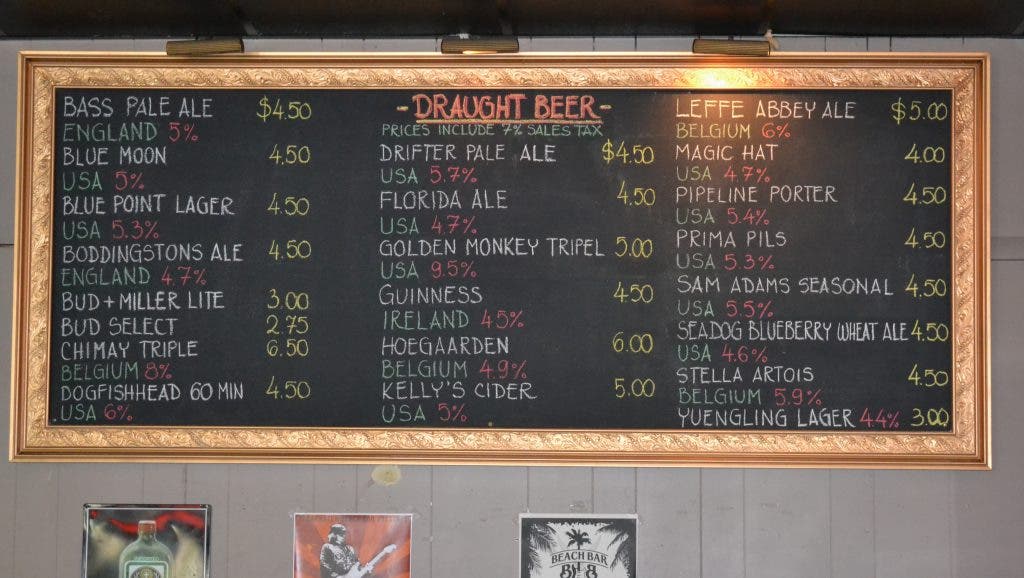 BASS PALE ALE $4.50
ENGLAND 5%
BLUE MOON 4.50
USA 5%
BLUE POINT LAGER 4.50
USA 5.3%
BODDINGSTONS ALE 4.50
ENGLAND 4.7%
BUD + MILLER LITE 3.00
BUD SELECT 2.75
CHIMAY TRIPLE 6.50
BELGIUM 8%
DOGFISHHEAD 60 MIN 4.50
USA 6%
- DRAUGHT BEER -
PRICES INCLUDE 7% SALES TAX
DRIFTER PALE ALE $4.50
USA 5.7%
FLORIDA ALE 4.50
USA 4.7%
GOLDEN MONKEY TRIPEL 5.00
USA 9.5%
GUINNESS 4.50
IRELAND 4.5%
HOEGAARDEN 6.00
BELGIUM 4.9%
KELLY'S CIDER 5.00
USA 5%
LEFFE ABBEY ALE $5.00
BELGIUM 6%
MAGIC HAT 4.00
USA 4.7%
PIPELINE PORTER 4.50
USA 5.4%
PRIMA PILS 4.50
USA 5.3%
SAM ADAMS SEASONAL 4.50
USA 5.5%
SEADOG BLUEBERRY WHEAT ALE 4.50
USA 4.6%
STELLA ARTOIS 4.50
BELGIUM 5.9%
YUENGLING LAGER 4.4% 3.00
BEACH BAR